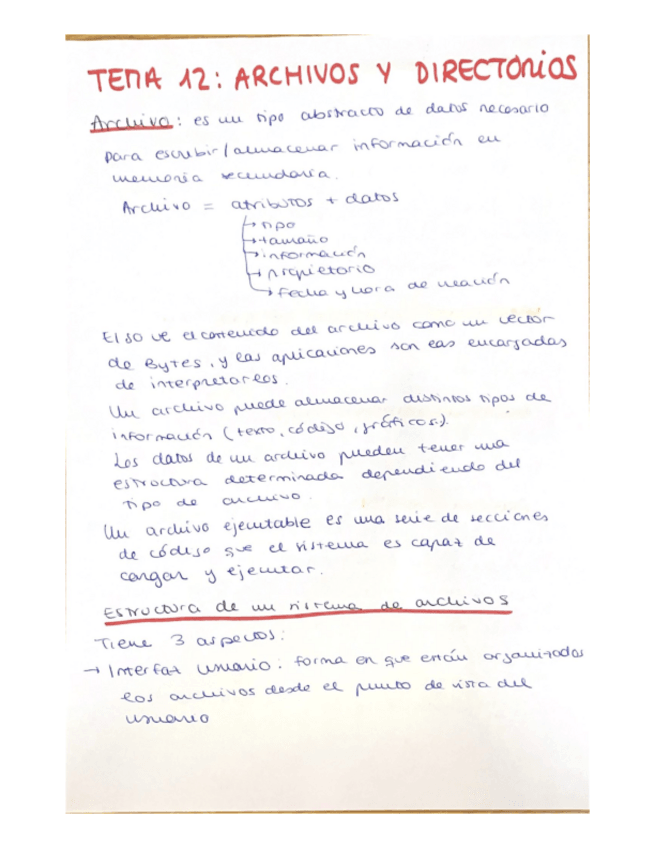 TEMA 12: ARCHIVOS Y DIRECTORIOS
Archivo: es un tipo abstracto de datos necesario
para escribir/almacenar información en
memoria secundaria.
Archivo = atributos + datos
→ tipo
→ tamaño
→ información
→ propietario
→ fecha y hora de creación
El SO ve el contenido del archivo como un vector
de Bytes, y las aplicaciones son las encargadas
de interpretarlos.
Un archivo puede almacenar distintos tipos de
información (texto, código, gráficos).
Los datos de un archivo pueden tener una
estructura determinada dependiendo del
tipo de archivo.
Un archivo ejecutable es una serie de secciones
de código que el sistema es capaz de
cargar y ejecutar.
Estructura de un sistema de archivos
Tiene 3 aspectos:
→ Interfaz usuario: forma en que están organizados
los archivos desde el punto de vista del
usuario